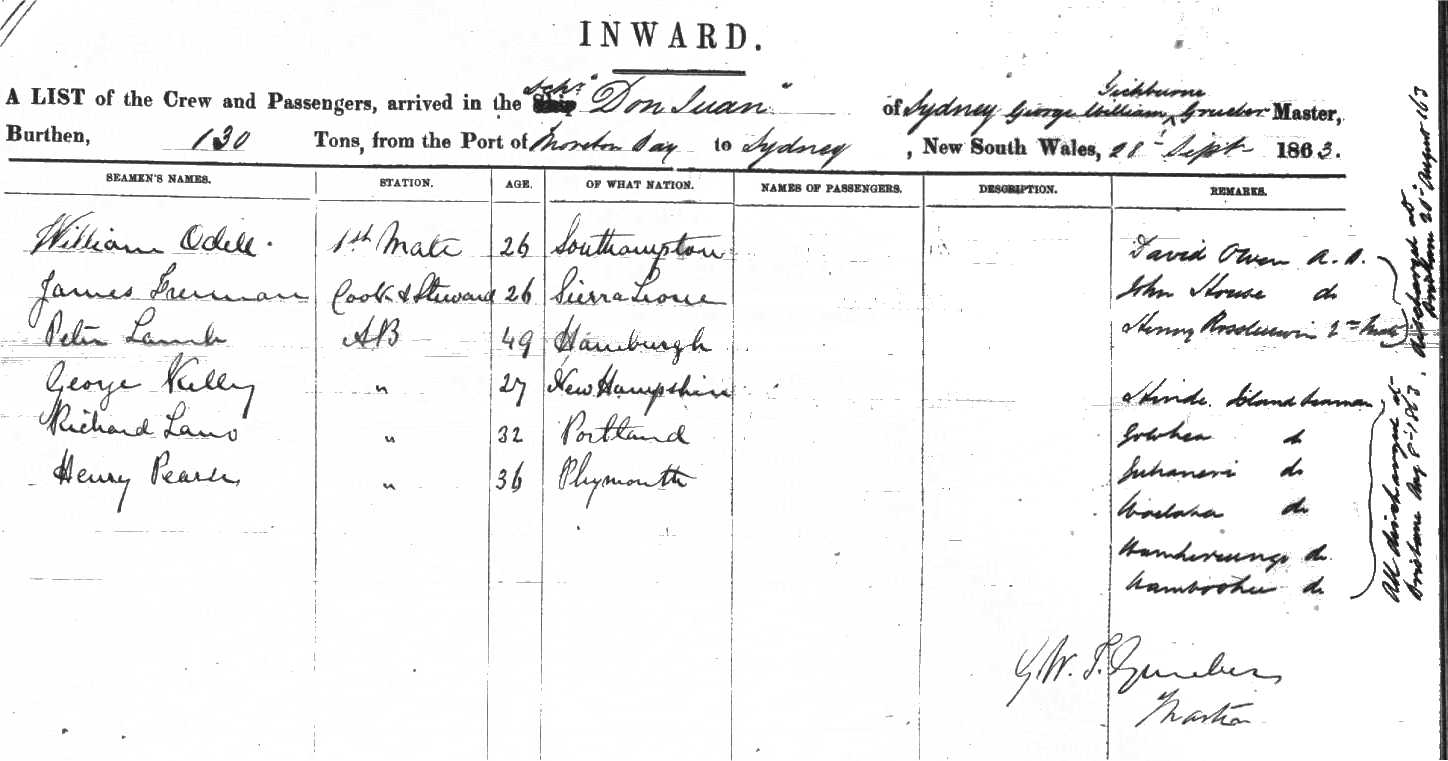 INWARD.
A LIST of the Crew and Passengers, arrived in the Schr "Don Juan" of Sydney George William Tichburne Master,
Burthen, 130 Tons, from the Port of Moreton Bay to Sydney, New South Wales, 28th Sept 1863.
SEAMEN'S NAMES. STATION. AGE. OF WHAT NATION. NAMES OF PASSENGERS. DESCRIPTION. REMARKS.
William Odell. 1st Mate 26 Southampton David Owen A.B.
James Freeman Cook & Steward 26 Sierra Leone John House do
Peter Lamb AB 49 Hamburgh Henry 2nd Mate
discharged at Brisbane 20th August 1863
George Kelly " 27 New Hampshire Island seaman
Richard " 32 Portland do
Henry Pearse " 36 Plymouth do
do
do
do
All discharged at Brisbane Aug 8th 1863.
G W. T. Grueber
Master